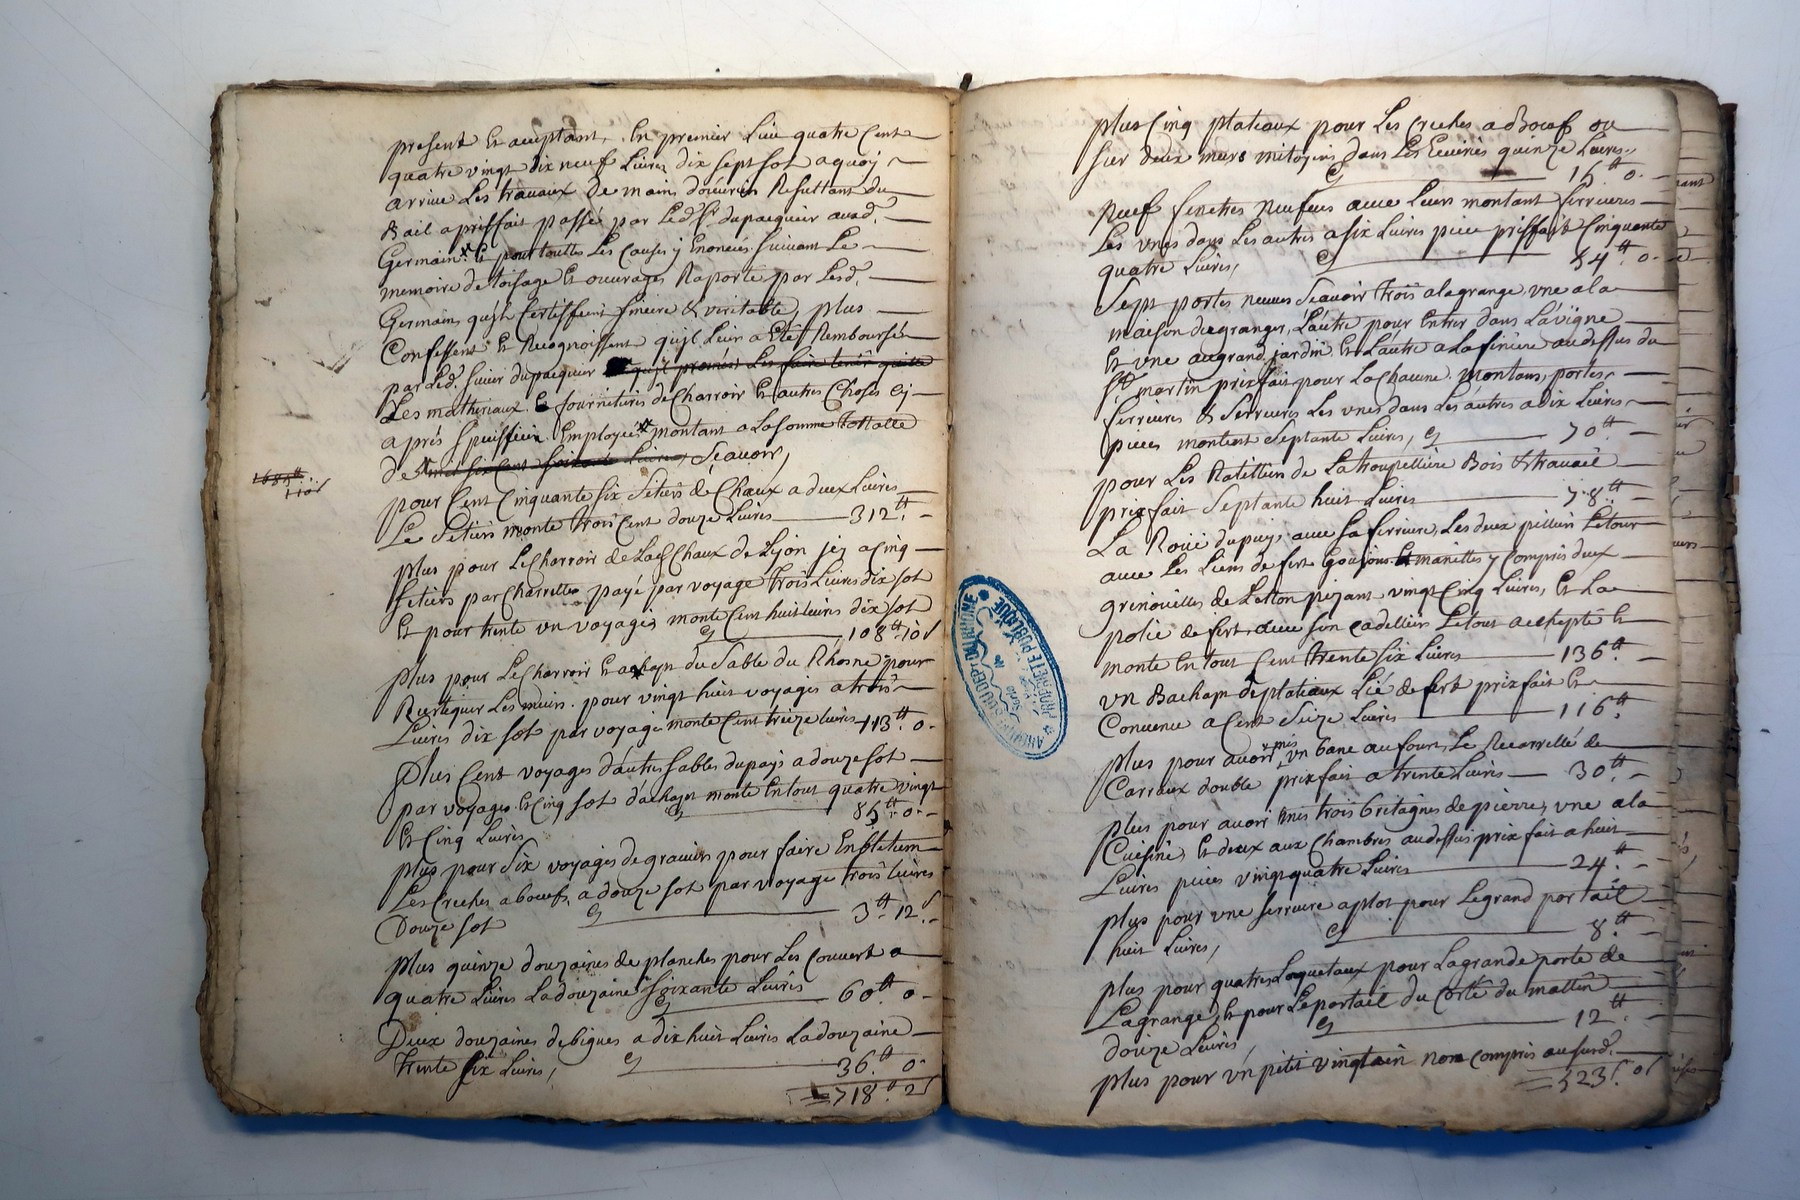 present et acceptant, En premier Lieu quatre Cent
quatre vingt dix neuf Livres dix sept sol aquoy
arrive Les travaux De mains douvriers Resultant du
Bail a priffait passé par Led. Sr. dupacquier aud.
Germain & pour touttes Les Causes y Enoncées suivant Le
memoire de toisage Et ouvrages Raporté par Lesd.
Germain, quils Certiffient sincere & veritable, plus
Confessent Et Recognoissent quil Leur a Eté Remboursé
par Led. sieur dupacquier
Les matheriaux & fournitures de Charroir Et autres Choses cy
aprés Employés montant a La somme Tottalle
de Scavoir,
pour Cent Cinquante six Setiers de Chaux a deux Livres
Le Setiers monte trois Cent douze Livres 312tt -
plus pour Le Charroir de Lad Chaux de Lyon jcy a Cinq
setiers par Charrette payé par voyage trois Livres dix sol
Et pour trente un voyages monte Cent huit Livres dix sol
108tt 10s
plus pour Le Charroir Et achapt du Sable du Rhosne pour
les murs. pour vingt huit voyages a trois
Livres dix sol par voyage monte Cent treize Livres 113tt 0-
Plus Cent voyages d'autres sables du pays a douze sol
par voyages Et Cinq sol d'achapt monte En tout quatre vingt
Et Cinq Livres 85tt 0-
plus pour Six voyages de graviers pour faire
Les Creches a boeufs a douze sol par voyage trois Livres
Douze sol 3tt 12s
plus quinze douzaines de planches pour Les Couvert a
quatre Livres La douzaine soixante Livres
60tt 0-
Deux douzaines de bigues a dix huit Livres La douzaine
trente six Livres, 36tt 0-
718tt 2s
1685tt
110s
plus Cinq plateaux pour Les Creches a Boeufs ou
sur deux murs mitoyens dans Les Ecuiries quinze Livres,
15tt 0-
Neuf fenetres Neufves avec Leurs montant ferrures
Les unes dans Les autres a six Livres piece priffait Cinquante
quatre Livres, 54tt 0-
Sept portes neuves Scavoir trois a la grange, une a la
maison du granger, L'autre pour Entrer dans La vigne
Et une au grand jardin Et L'autre a La au dessus du
St martin prix fait pour La Chacune montans, portes,
ferrures & Serrures Les unes dans Les autres a dix Livres
pieces montent Septante Livres, 70tt -
pour Les Ratelliers de La Bois & travail
prix fait Septante huit Livres 78tt -
La Roüe du puys avec sa ferrure, Les deux pilliers Le tour
avec Les Liens de fert Goujons Et maniettes y Compris deux
grenouilles de Letton pezant vingt Cinq Livres, Et La
polie de fert, avec son Le tout achepté Et
monte En tout Cent trente six Livres 136tt -
un Bachap de plateaux Lié de fert prix fait Et
Convenu a Cent Seize Livres 116tt
plus pour avoir mis un banc au four, Le Recarrellé de
Carraux double prix fait a trente Livres 30tt -
plus pour avoir mis trois bretagnes de pierre, une a la
Cuisine, Et deux aux Chambres au dessus prix fait a huit
Livres pieces vingt quatre Livres 24tt -
plus pour une serrure a plot pour Le grand portail
huit Livres, 8tt -
plus pour quatres Loquetaux pour La grande porte de
La grange, Et pour Le portail du Côté du mattin
douze Livres, 12tt -
plus pour un petit vingtain non compris au susd.
523tt 0s
PROPRIETE PUBLIQUE